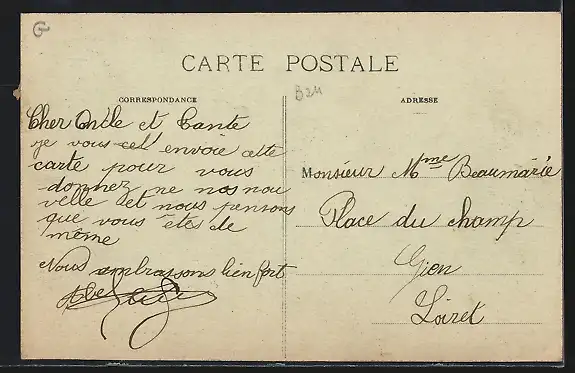 CARTE POSTALE
CORRESPONDANCE
Cher Oncle et Tante
je vous cet envoie cette
carte pour vous
donnez ne nos nou
velle et nous pensons
que vous êtes de
même
Nous embrassons bien fort
Abel
ADRESSE
B24
Monsieur Mme Beaumarié
Place du champ
Gien
Loiret